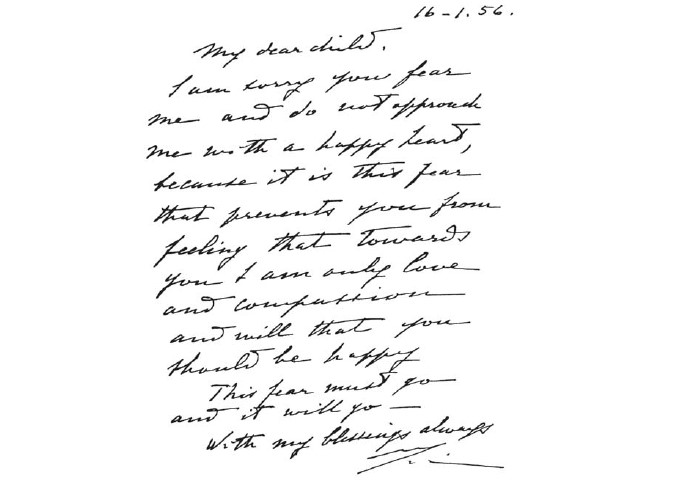 16-1.56.
My dear child.
I am sorry you fear
me and do not approach
me with a happy heart,
because it is this fear
that prevents you from
feeling that towards
you I am only love
and compassion
and will that you
should be happy
This fear must go
and it will go —
With my blessings always